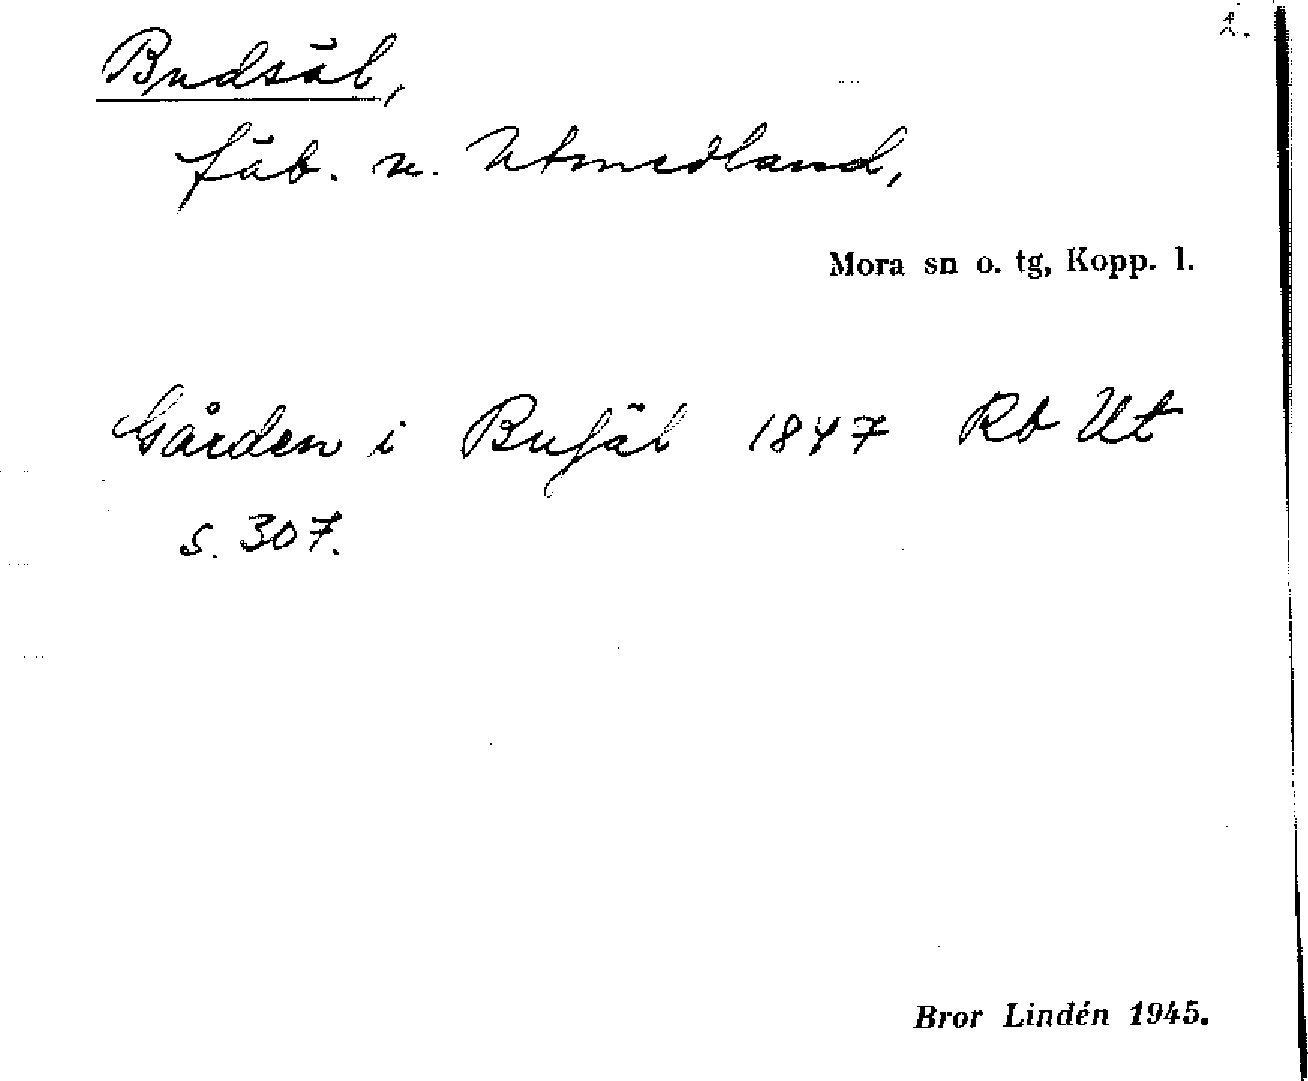 2.
Budsäl,
fäb. u. Utmedland,
Mora sn o. tg, Kopp. l.
Gården i Bufäl 1847 Rb Ut
s. 307.
Bror Lindén 1945.